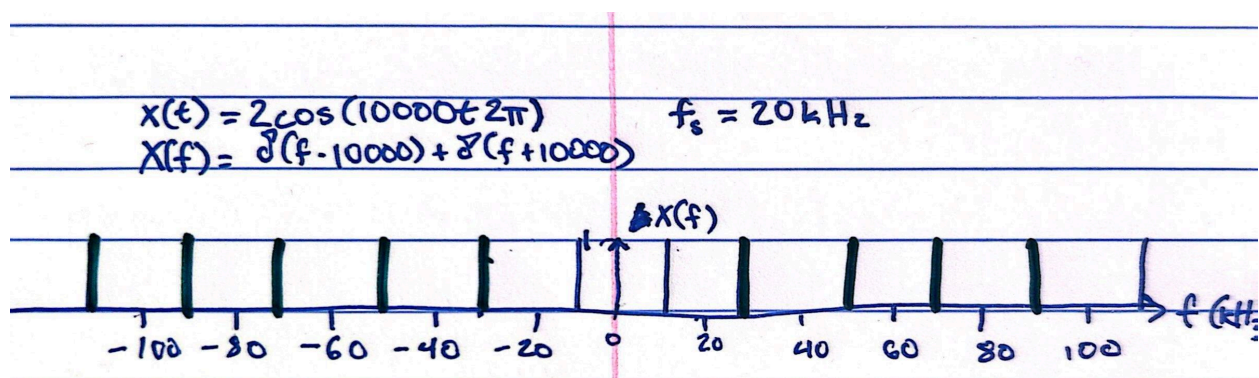 x(t) = 2cos(10000t2π) f_s = 20kHz
X(f) = δ(f-10000) + δ(f+10000)
X(f)
1
-100 -80 -60 -40 -20 0 20 40 60 80 100 f (kHz